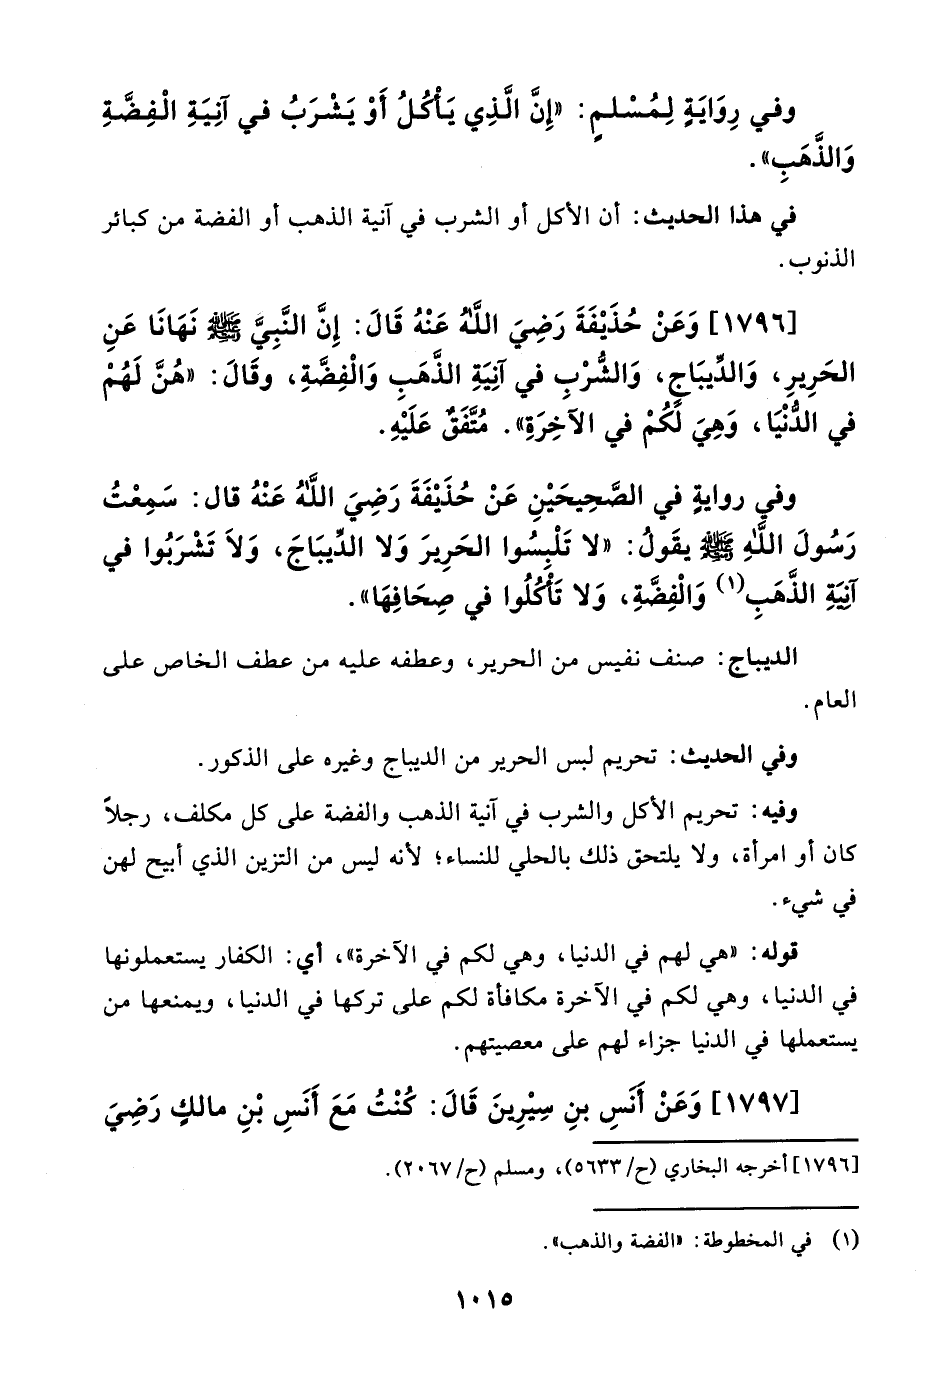 وفي رِوَايَةٍ لِمُسْلمٍ: «إِنَّ الَّذِي يَأْكُلُ أَوْ يَشْرَبُ في آنِيَةِ الْفِضَّةِ
وَالذَّهَبِ».
في هذا الحديث: أن الأكل أو الشرب في آنية الذهب أو الفضة من كبائر
الذنوب.
[١٧٩٦] وَعَنْ حُذَيْفَةَ رَضِيَ اللَّهُ عَنْهُ قَالَ: إِنَّ النَّبِيَّ ﷺ نَهَانَا عَنِ
الحَرِيرِ، وَالدِّيبَاجِ، وَالشُّرْبِ في آنِيَةِ الذَّهَبِ وَالْفِضَّةِ، وقَالَ: «هُنَّ لَهُمْ
في الدُّنْيَا، وَهِيَ لَكُمْ في الآخِرَةِ». مُتَّفَقٌ عَلَيْهِ.
وفي روايةٍ في الصَّحِيحَيْنِ عَنْ حُذَيْفَةَ رَضِيَ اللَّهُ عَنْهُ قال: سَمِعْتُ
رَسُولَ اللَّهِ ﷺ يقَولُ: «لا تَلْبِسُوا الحَرِيرَ وَلا الدِّيبَاجَ، وَلاَ تَشْرَبُوا في
آنِيَةِ الذَّهَبِ(١) وَالْفِضَّةِ، وَلا تَأْكُلُوا في صِحَافِهَا».
الديباج: صنف نفيس من الحرير، وعطفه عليه من عطف الخاص على
العام.
وفي الحديث: تحريم لبس الحرير من الديباج وغيره على الذكور.
وفيه: تحريم الأكل والشرب في آنية الذهب والفضة على كل مكلف، رجلاً
كان أو امرأة، ولا يلتحق ذلك بالحلي للنساء؛ لأنه ليس من التزين الذي أبيح لهن
في شيء.
قوله: «هي لهم في الدنيا، وهي لكم في الآخرة»، أي: الكفار يستعملونها
في الدنيا، وهي لكم في الآخرة مكافأة لكم على تركها في الدنيا، ويمنعها من
يستعملها في الدنيا جزاء لهم على معصيتهم.
[١٧٩٧] وَعَنْ أَنَسِ بنِ سِيْرِينَ قَالَ: كُنْتُ مَعَ أَنَسِ بْنِ مالكٍ رَضِيَ
[١٧٩٦] أخرجه البخاري (ح/٥٦٣٣)، ومسلم (ح/٢٠٦٧).
(١) في المخطوطة: «الفضة والذهب».
١٠١٥